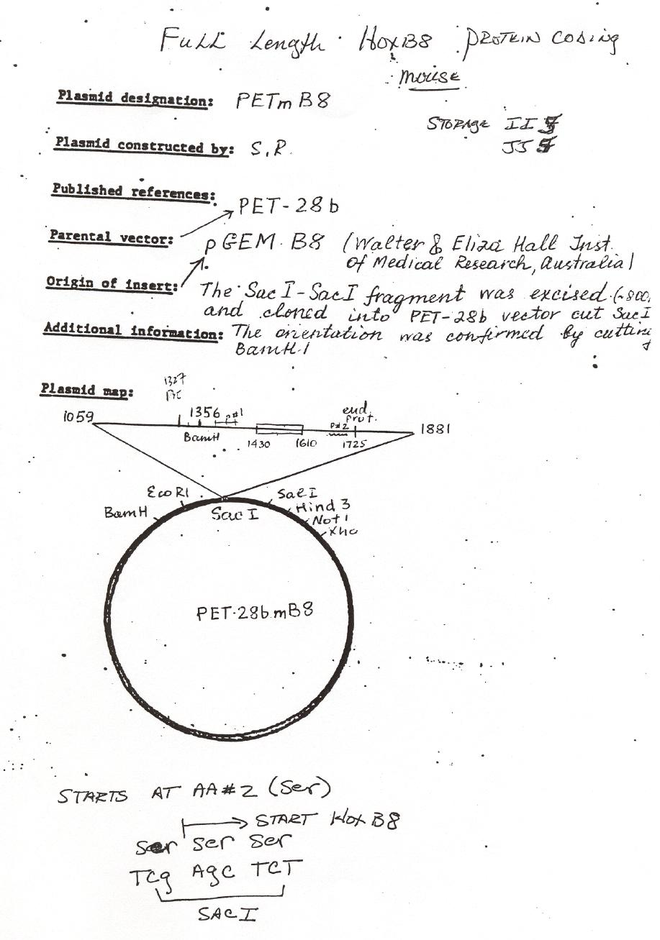 FULL Length HoxB8 PROTEIN CODING
mouse
Plasmid designation: PETm B8
STORAGE II
JJ
Plasmid constructed by: S.R.
Published references:
PET-28b
Parental vector:
pGEM. B8 (Walter & Eliza Hall Inst.
of Medical Research, Australia)
Origin of insert:
The Sac I-SacI fragment was excised (~800
and cloned into PET-28b vector cut SacI
Additional information: The orientation was confirmed by cutting
BamH.1
Plasmid map:
1327
1059 1356 P#1 P#2 end prot. 1881
BamH 1430 1610 1725
EcoRI SalI
BamH Sac I Hind 3
Not 1
Xho
PET-28b.mB8
STARTS AT AA#2 (Ser)
START Hox B8
Ser Ser Ser
TCg AgC TCT
SACI